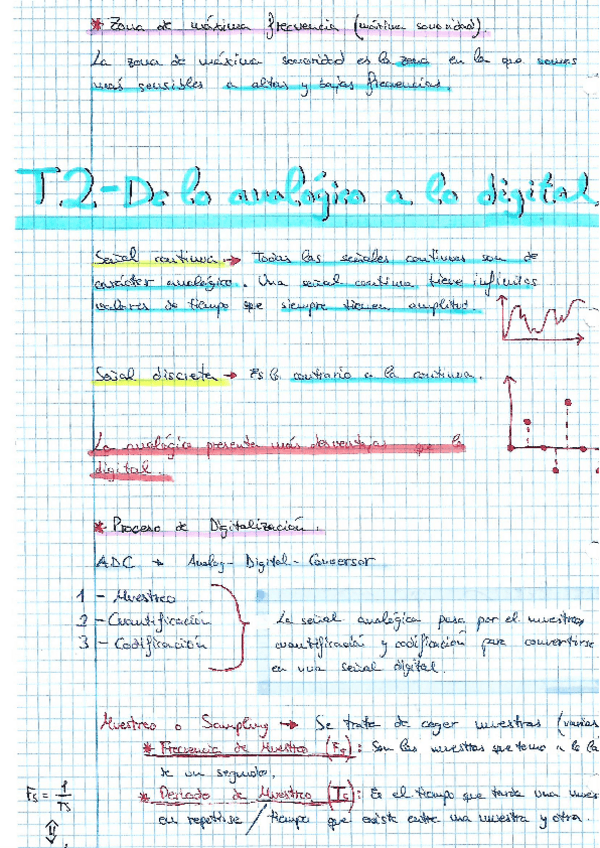 * Zona de máxima frecuencia (máxima sonoridad).
La zona de máxima sonoridad es la zona en la que somos
más sensibles a altas y bajas frecuencias.
T.2.-De lo analógico a lo digital
Señal continua → Todas las señales continuas son de
carácter analógico. Una señal continua tiene infinitos
valores de tiempo que siempre tienen amplitud.
Señal discreta → Es lo contrario a la continua.
La analógica presenta más desventajas que la
digital.
* Proceso de Digitalización.
ADC → Analog-Digital-Conversor
1 - Muestreo
2 - Cuantificación
3 - Codificación
La señal analógica pasa por el muestreo
cuantificación y codificación para convertirse
en una señal digital.
Muestreo o Sampling → Se trata de coger muestras (varias
* Frecuencia de Muestreo (Fs): Son las muestras que tomo a lo la
de un segundo.
Fs = 1/Ts
* Periodo de Muestreo (Ts): Es el tiempo que tarda una mues
en repetirse / tiempo que existe entre una muestra y otra.